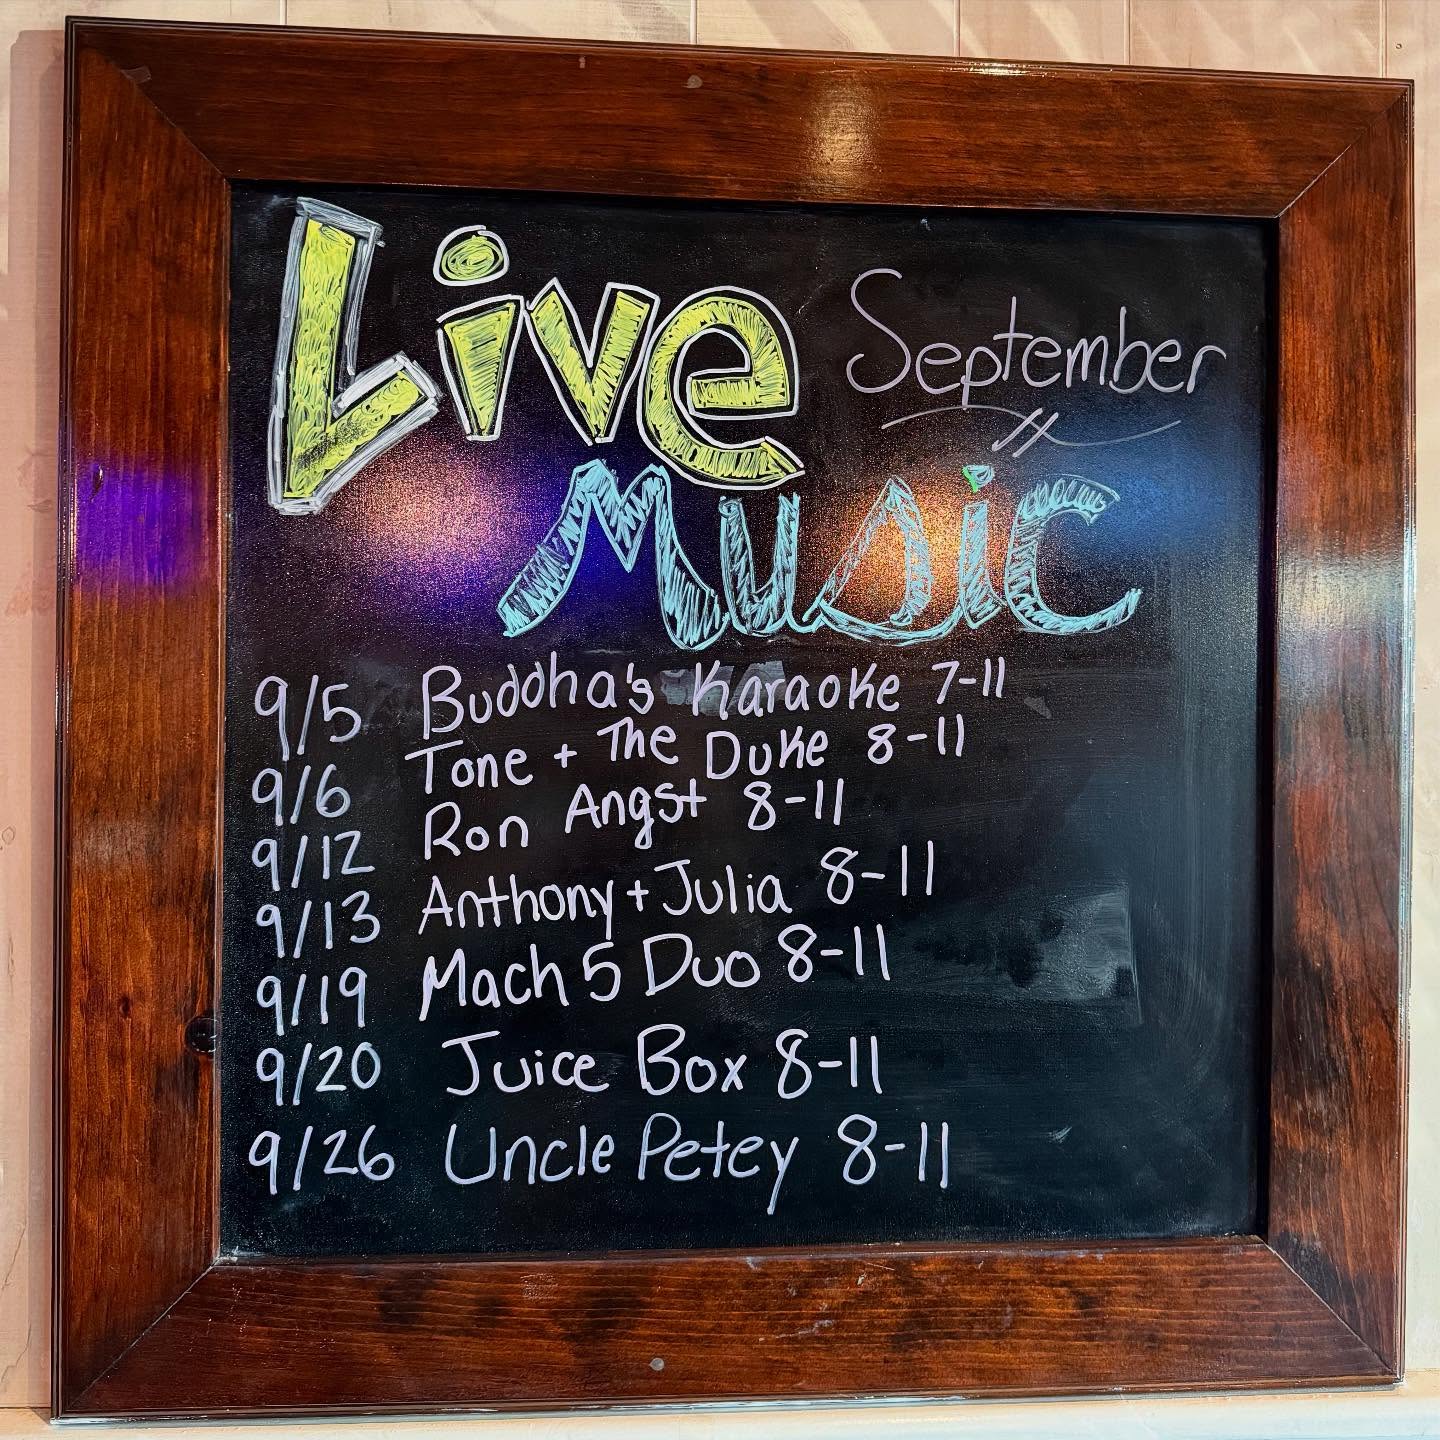 Live
September
Music
9/5 Buddha's Karaoke 7-11
9/6 Tone + The Duke 8-11
9/12 Ron Angst 8-11
9/13 Anthony + Julia 8-11
9/19 Mach 5 Duo 8-11
9/20 Juice Box 8-11
9/26 Uncle Petey 8-11